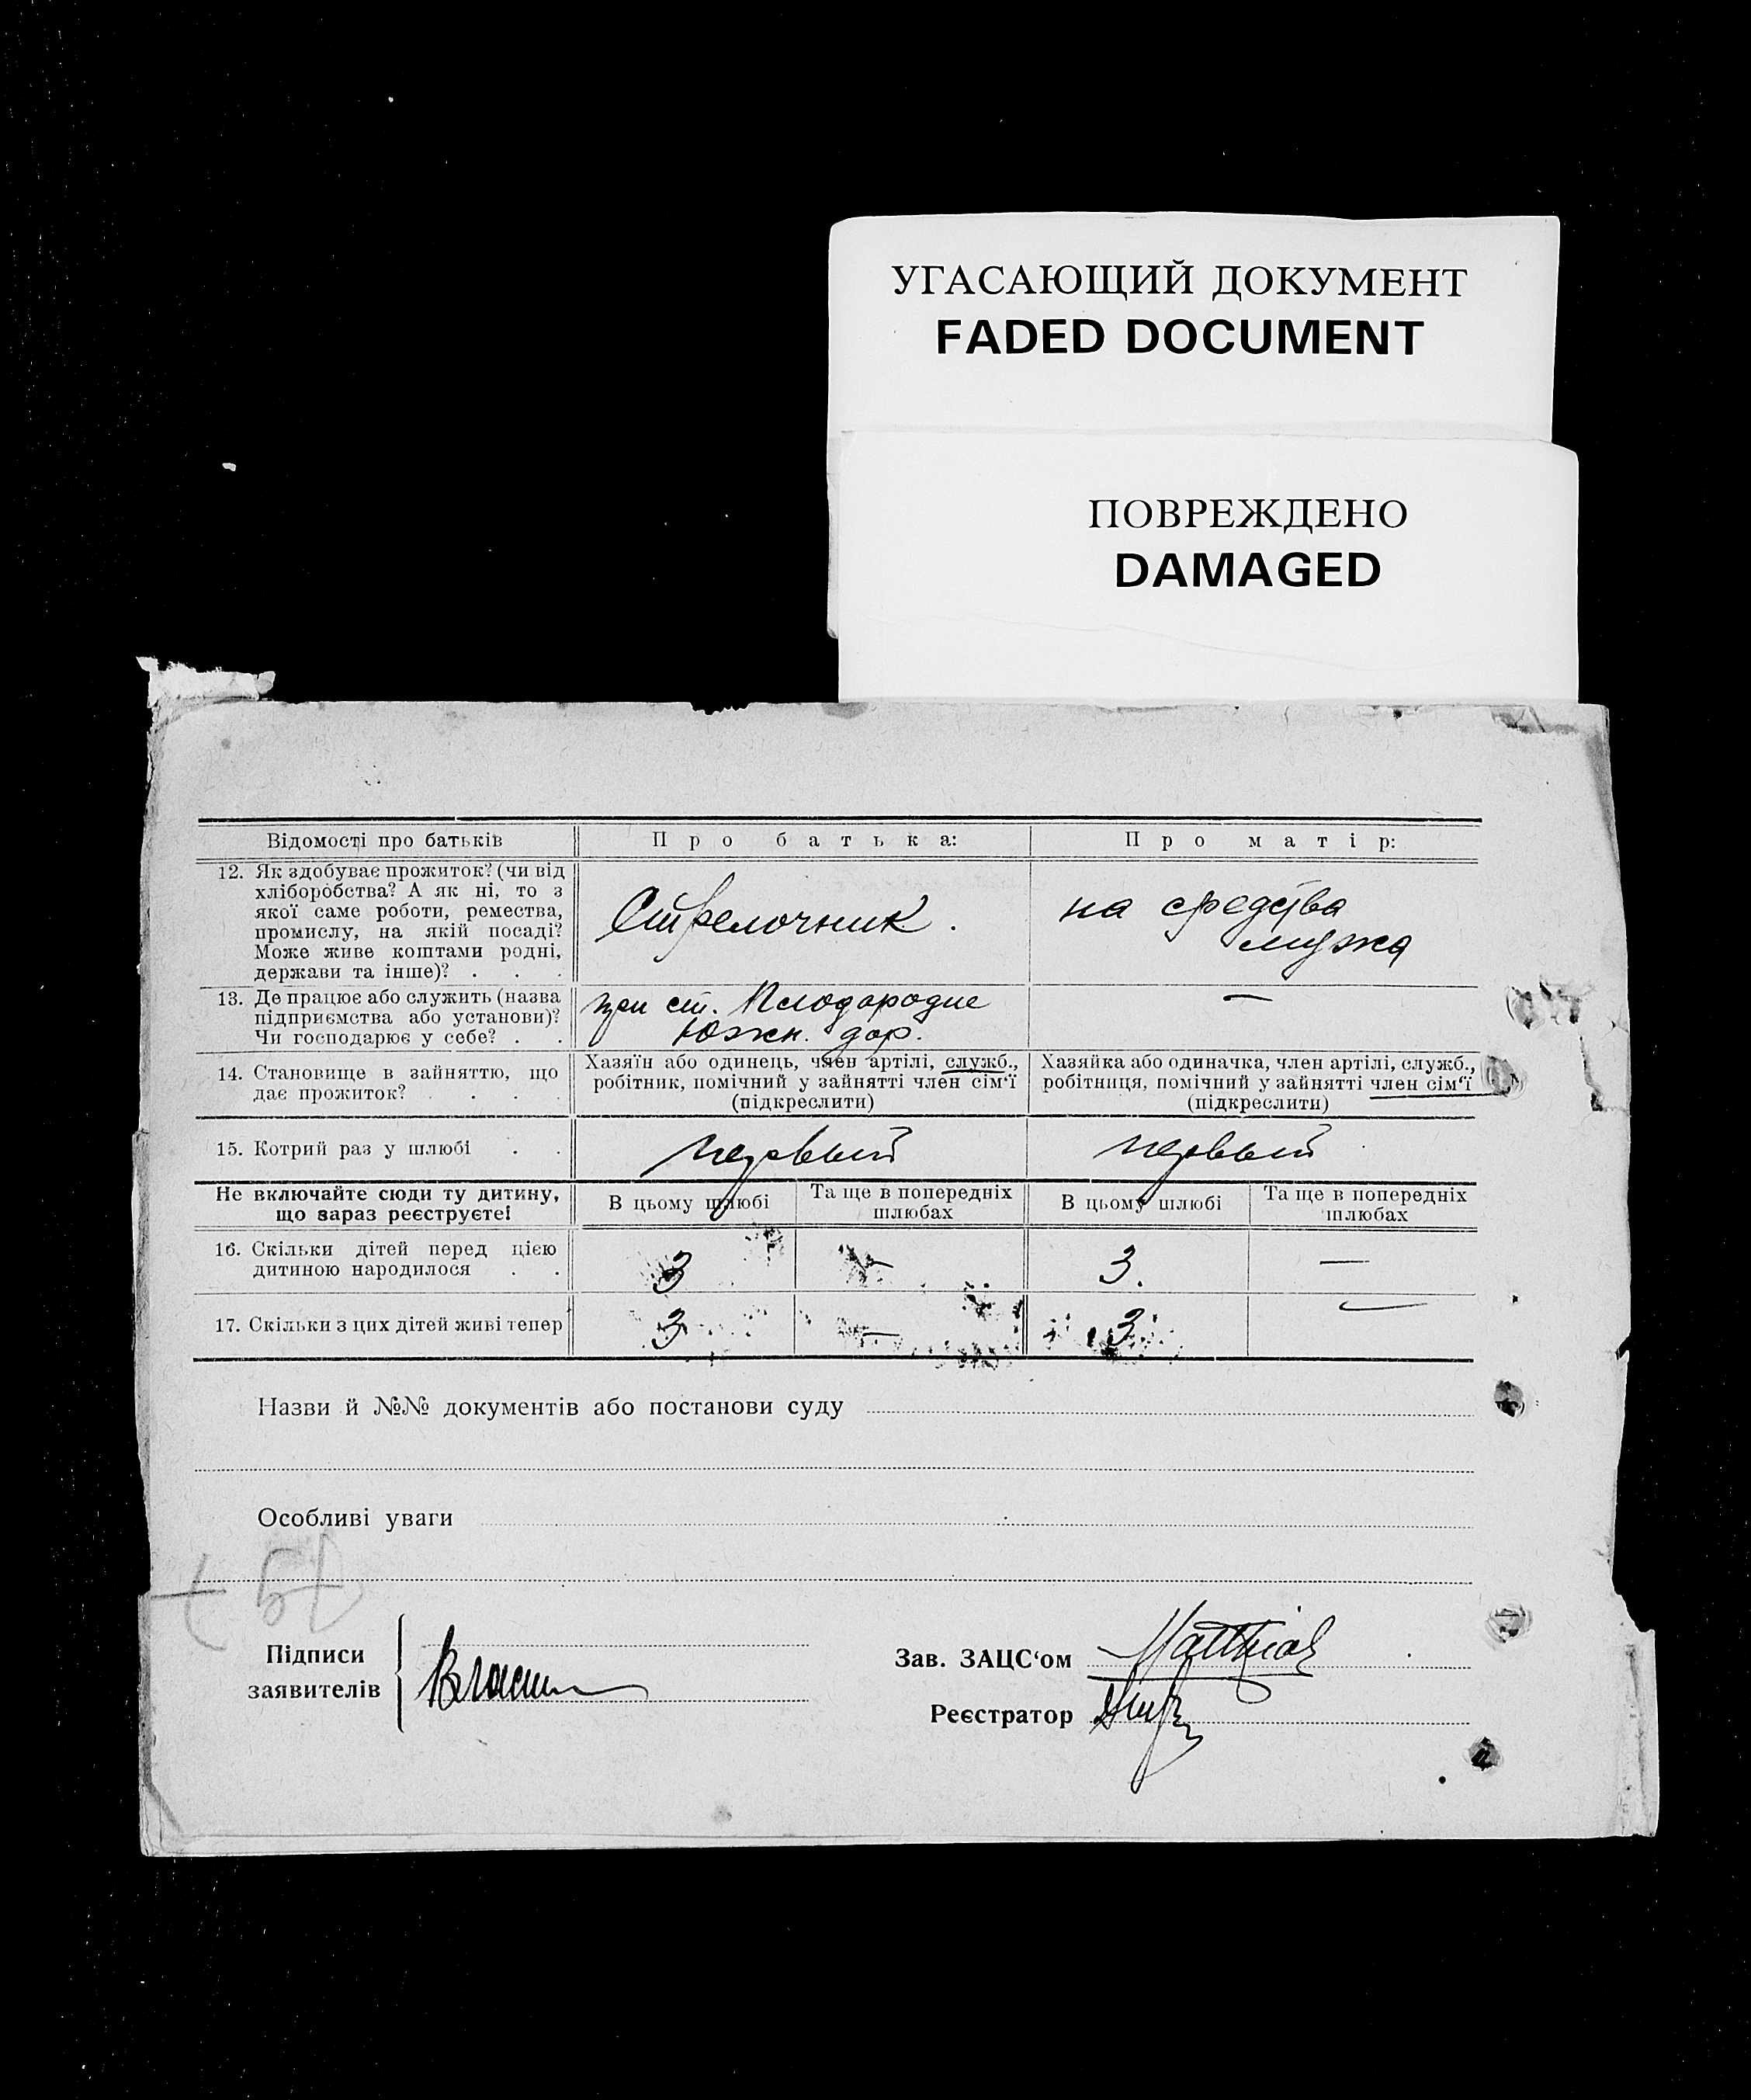 УГАСАЮЩИЙ ДОКУМЕНТ
FADED DOCUMENT
ПОВРЕЖДЕНО
DAMAGED
Відомості про батьків
Про батька:
Про матір:
12. Як здобуває прожиток? (чи від
хліборобства? А як ні, то з
якої саме роботи, ремества,
промислу, на якій посаді?
Може живе коштами родні,
держави та інше)? . . .
Стрелочник.
на средства
мужа
13. Де працює або служить (назва
підприємства або установи)?
Чи господарює у себе? . .
при ст. Плодородие
Южн. дор.
—
14. Становище в зайняттю, що
дає прожиток? . . . .
Хазяїн або одинець, член артілі, служб.,
робітник, помічний у зайнятті член сім‘ї
(підкреслити)
Хазяйка або одиначка, член артілі, служб.,
робітниця, помічний у зайнятті член сім‘ї
(підкреслити)
15. Котрий раз у шлюбі . .
первый
первый
Не включайте сюди ту дитину,
що зараз реєструєте!
В цьому шлюбі
Та ще в попередніх
шлюбах
В цьому шлюбі
Та ще в попередніх
шлюбах
16. Скільки дітей перед цією
дитиною народилося . .
3
—
3.
—
17. Скільки з цих дітей живі тепер
3
—
3
—
Назви й №№ документів або постанови суду
Особливі уваги
Підписи
заявителів
Зав. ЗАЦС‘ом
Реєстратор